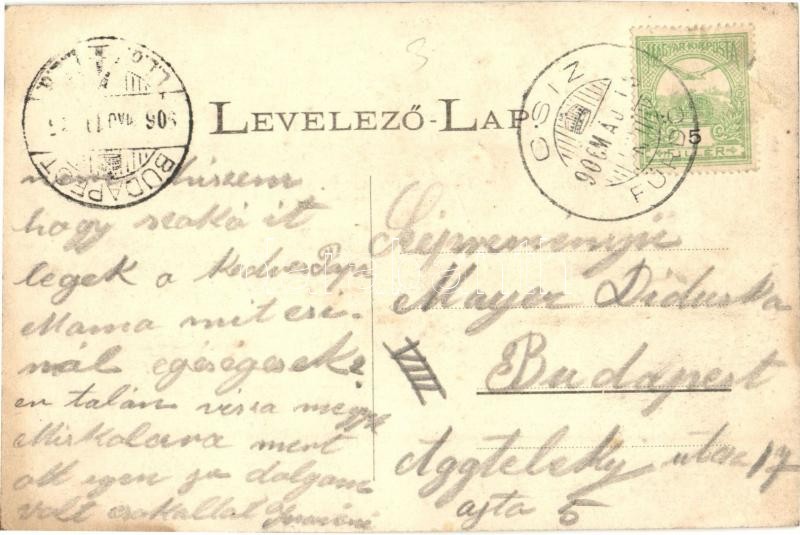 LEVELEZŐ-LAP
BUDAPEST
906 MAJ
CSIZ FÜRDŐ
906 MAJ
MAGYAR KIR. POSTA
5
FILLER
hiszem
hogy szaká it
legek a Kedves Papa
Mama mit csi-
nál egéségesek?
en talán visza megyek
Miskolcra mert
ott igen jo dolgom
volt csokallal
Szépreményü
Mayer Diduska
VIII
Budapest
Aggteleky utca 17
ajto 5